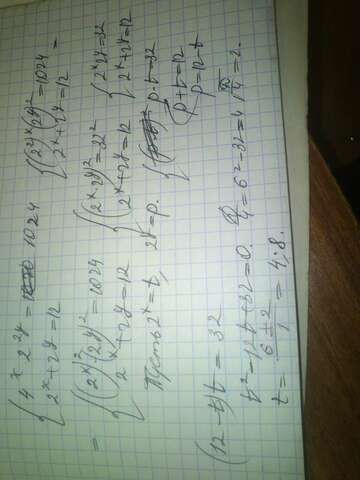 {4^x 2^{2y} = 1024
2^x + 2^y = 12
{(2^{2x}(2^y)^2 = 1024
2^x + 2^y = 12 =
= {(2^x)^2 (2^y)^2 = 1024
2^x + 2^y = 12
{(2^x 2^y)^2 = 32^2
2^x + 2^y = 12
{2^x 2^y = 32
2^x + 2^y = 12
Пусть 2^x = t, 2^y = p.
{p·t = 32
p + t = 12
p = 12 - t
(12 - t)t = 32
t^2 - 12t + 32 = 0. D/4 = 6^2 - 32 = 4 √4 = 2.
t = 6 ± 2 / 1 = 4; 8.